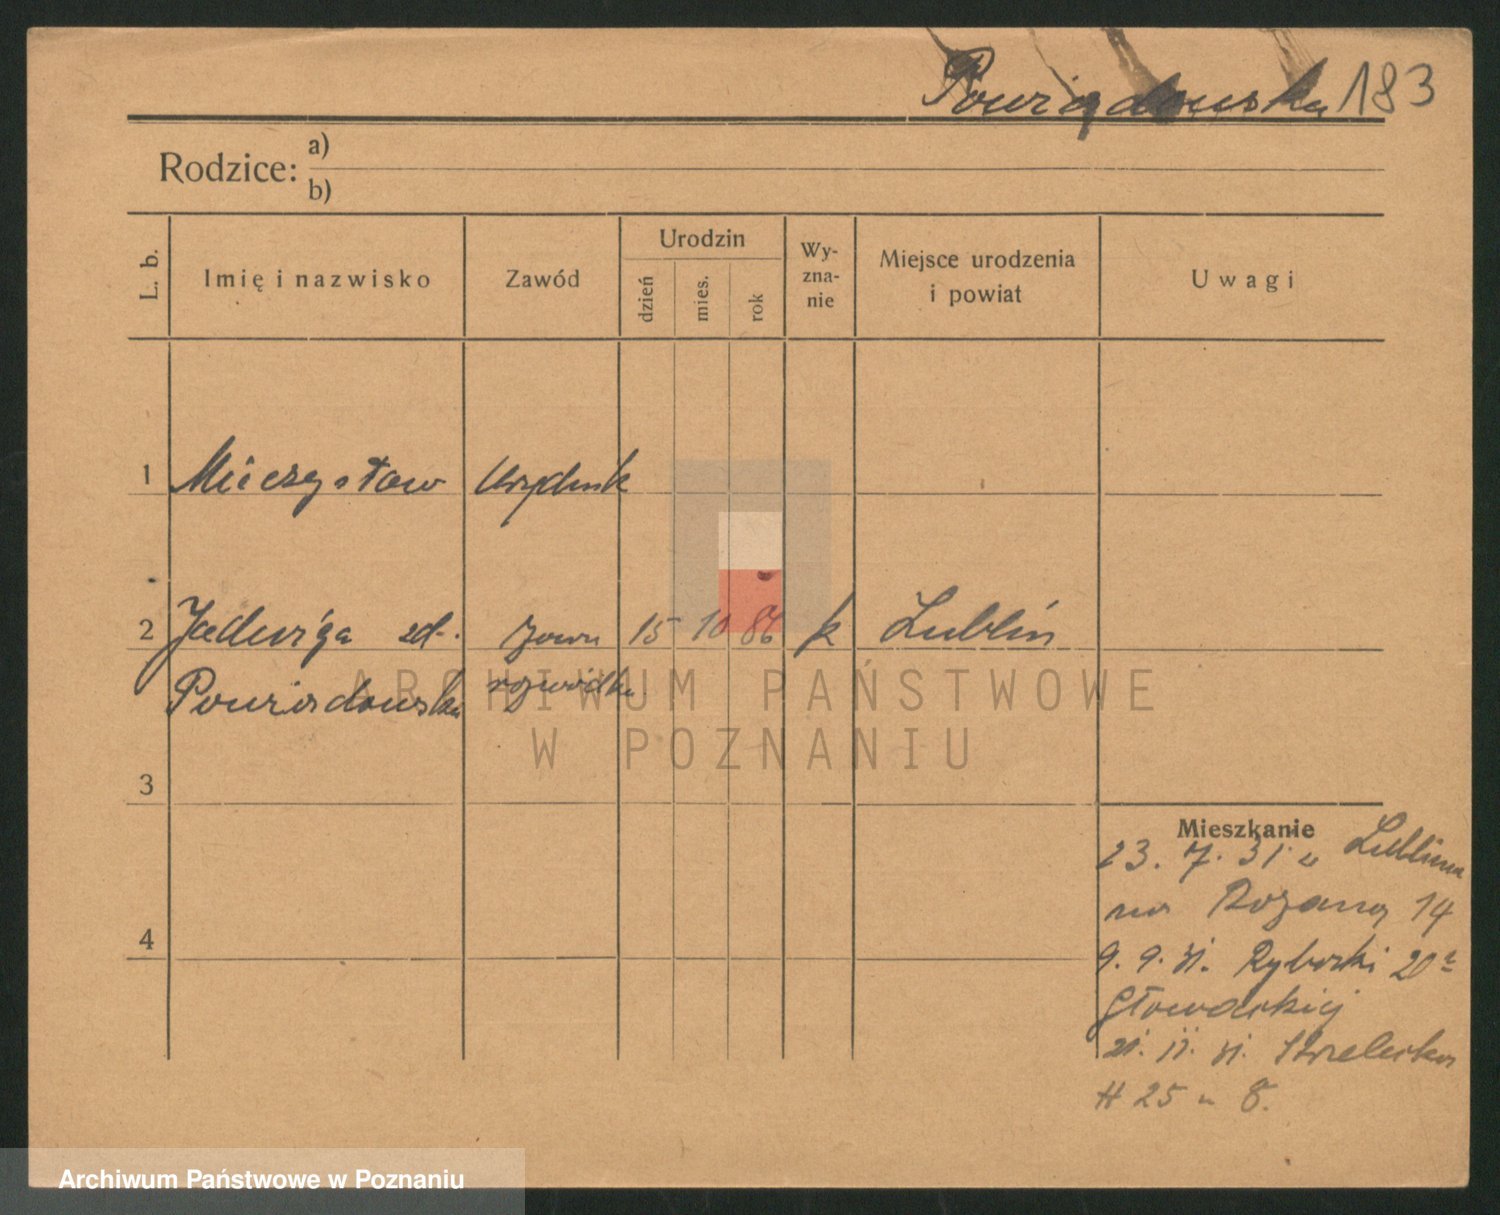 Powiadowska 183
Rodzice: a)
b)
L. b.
Imię i nazwisko
Zawód
Urodzin
dzień
mies.
rok
Wy-
zna-
nie
Miejsce urodzenia
i powiat
Uwagi
1 Mieczysław
2 Jadwiga zd. żona 15 10 86 k Lublin
Powiadowska rozwódka
3
4
ARCHIWUM PAŃSTWOWE
W POZNANIU
Mieszkanie
23. 7. 31 z Lublina
na Różaną 14
9. 9. 31. Rybaki 20
21. 11. 31. Strzelecka
25 8.
Archiwum Państwowe w Poznaniu